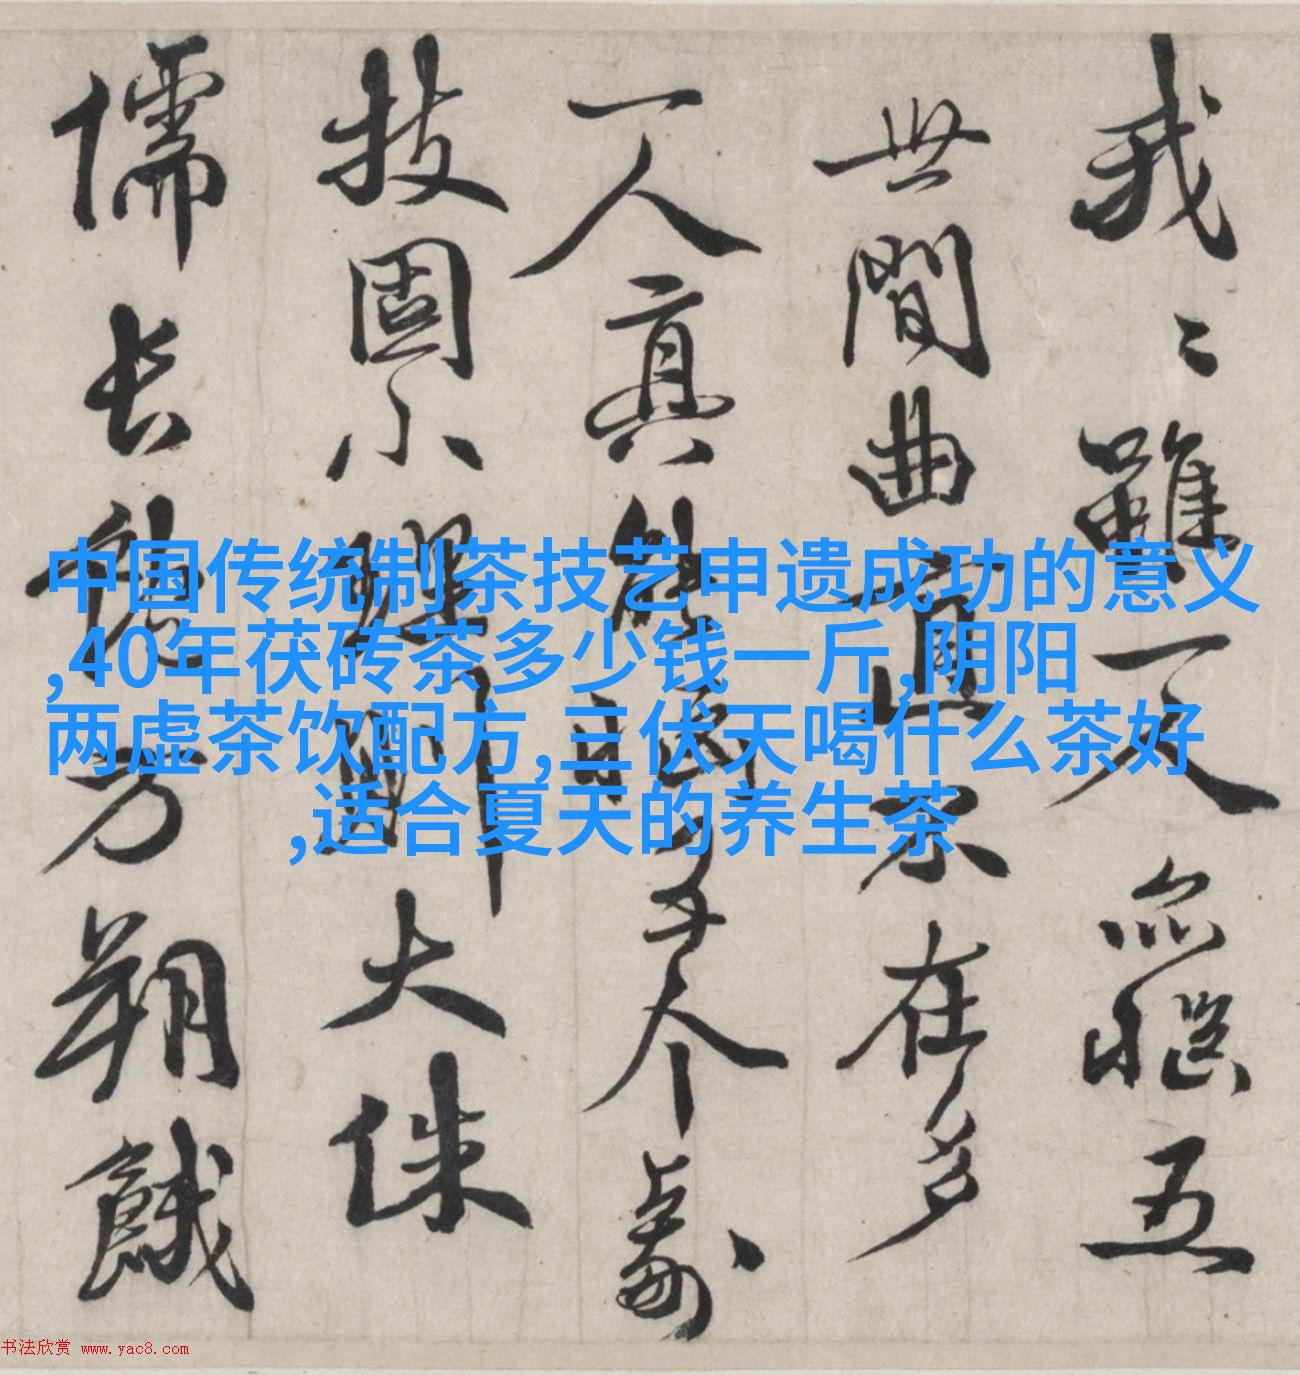 中国传统制茶技艺申遗成功的意义
,40年茯砖茶多少钱一斤,阴阳
两虚茶饮配方,三伏天喝什么茶好
,适合夏天的养生茶
我雖五
世間曲直不在多
一人真能
技固小大侏
儒長飽方朔餓
书法欣赏 www.yac8.com